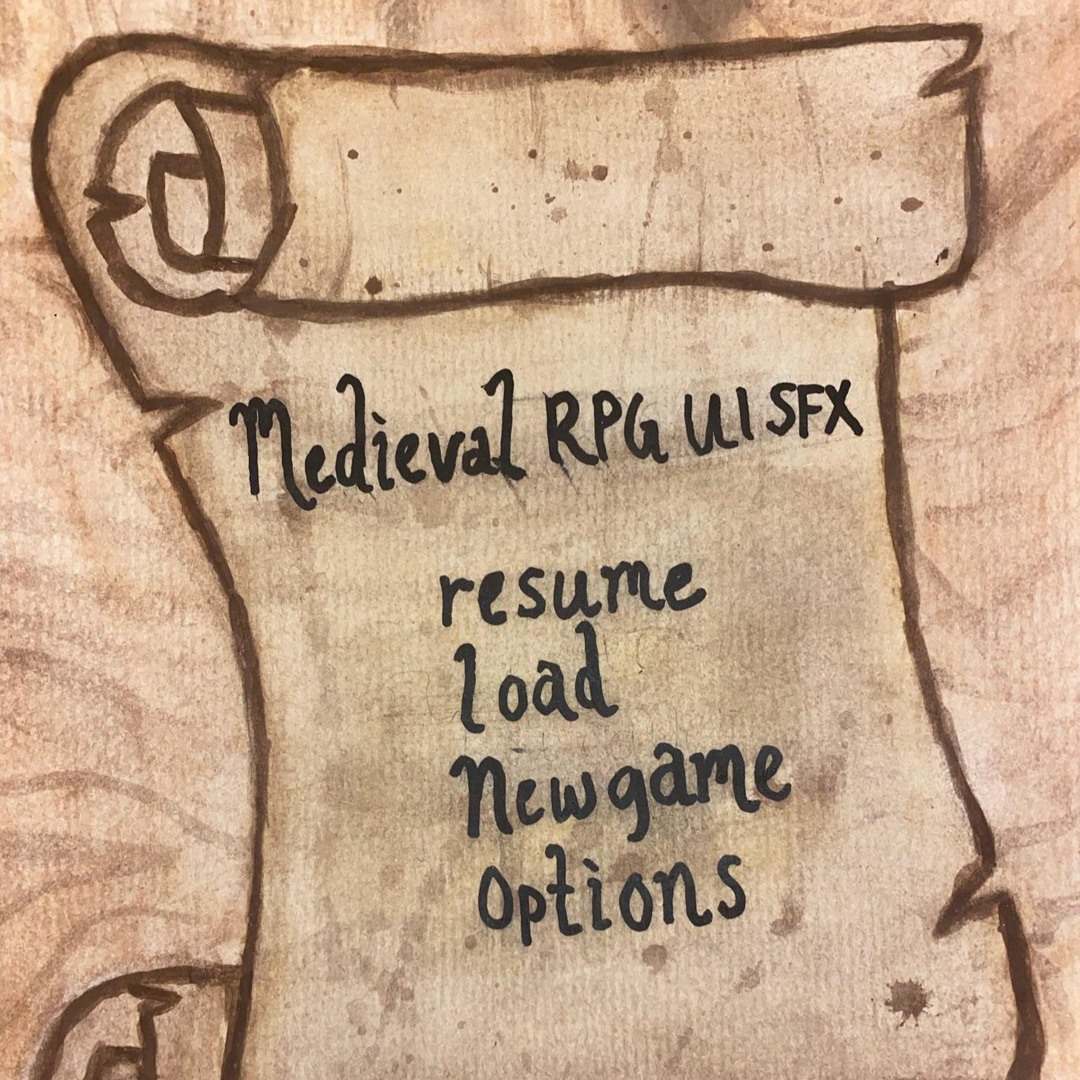 Medieval RPG UI SFX
resume
load
Newgame
Options